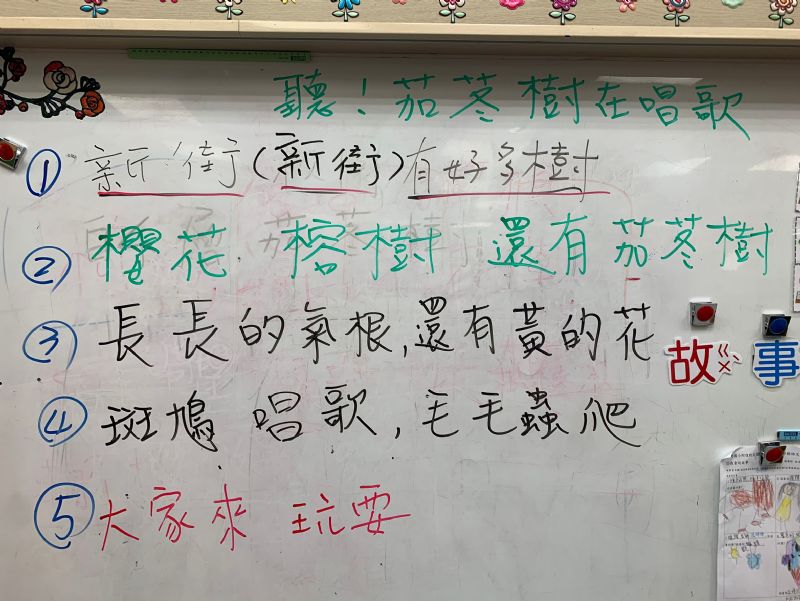 聽!茄苳樹在唱歌
①新街(新街)有好多樹
②櫻花 榕樹 還有茄苳樹
③長長的氣根,還有黃的花
④斑鳩 唱歌,毛毛蟲爬
⑤大家來 玩耍
故ㄍㄨˋ事